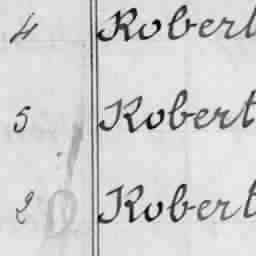 4 Robert
5 Robert
2 Robert